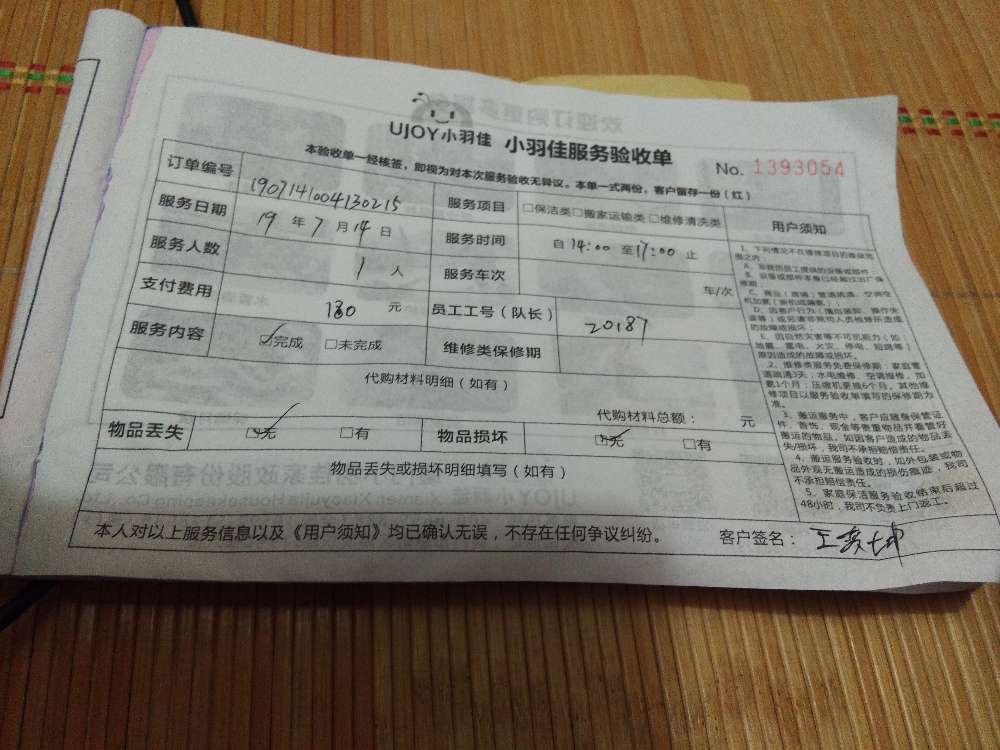 UJOY小羽佳 小羽佳服务验收单
No. 1393054
本验收单一经核签，即视为对本次服务验收无异议。本单一式两份，客户留存一份（红）
订单编号 1907141004130215 服务项目 □保洁类□搬家运输类□维修清洗类 用户须知
服务日期 19 年 7 月 14 日 服务时间 自 14:00 至 17:00 止
服务人数 1 人 服务车次 车/次
支付费用 130 元 员工工号（队长） 20187
服务内容 ☑完成 □未完成 维修类保修期
代购材料明细（如有）
代购材料总额： 元
物品丢失 ☑无 □有 物品损坏 ☑无 □有
物品丢失或损坏明细填写（如有）
1、下列情况不在维修项目的维保范围之内
D、因客户行为（擅自装卸、操作失误等）或另请非我司人员检修所造成的故障或损坏；
E、因自然灾害等不可抗能力（如：地震、雷电、火灾、停电、短路等）原因造成的故障或损坏。
2、维修类服务免费保修期：家庭管道疏通3天；水电维修、空调维修、加氨1个月；压缩机更换6个月。其他维修项目以服务验收单填写的保修期为准。
3、搬运服务中，客户应随身保管证件、首饰、现金等贵重物品并看管好搬运的物品。如因客户造成的物品丢失/损坏，我司不承担赔偿责任。
4、搬运服务验收时，如外包装或物品外观无搬运造成的损伤痕迹，我司不承担赔偿责任。
5、家庭保洁服务验收结束后超过48小时，我司不负责上门返工。
本人对以上服务信息以及《用户须知》均已确认无误，不存在任何争议纠纷。 客户签名：